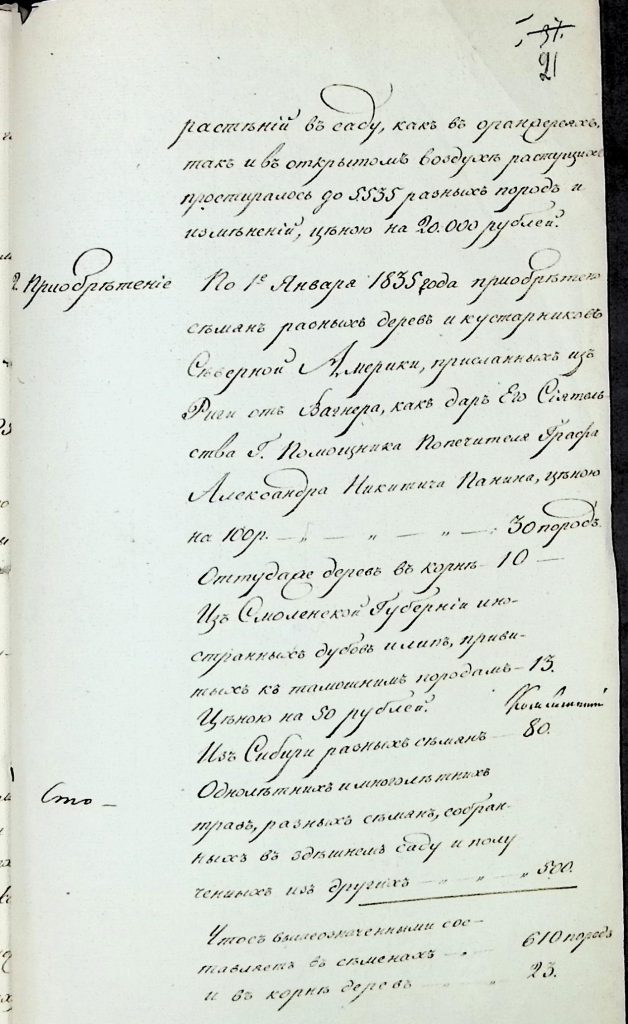 37.
21
растѣній въ саду, какъ въ оранжереяхъ,
такъ и въ открытомъ воздухѣ растущихъ
простиралось до 5535 разныхъ породъ и
измѣненій, цѣною на 20.000 рублей.
2. Приобрѣтеніе По 1е Января 1835 года приобрѣтено
сѣмянъ разныхъ деревъ и кустарниковъ
Сѣверной Америки, присланныхъ изъ
Риги отъ Вагнера, какъ даръ Его Сіятель-
ства Г. Помощника Попечителя Графа
Александра Никитича Панина, цѣною
на 100 р. — „ — „ — „ — : 30 породъ.
Оттудаже деревъ въ корнѣ — 10 —
Изъ Смоленской Губерніи ино-
странныхъ дубовъ и липъ, приви-
тыхъ къ тамошнимъ породамъ — 13.
Цѣною на 50 рублей.
Изъ Сибири разныхъ сѣмянъ — 80.
Сто —
Однолѣтнихъ и многолѣтнихъ
травъ, разныхъ сѣмянъ, собран-
ныхъ въ здѣшнемъ саду и полу
ченныхъ изъ другихъ — „ — „ — „ 500.
Что съ вышеозначенными сос-
тавляетъ въ сѣменахъ — „ — 610 породъ
и въ корнѣ деревъ — „ — „ 23.